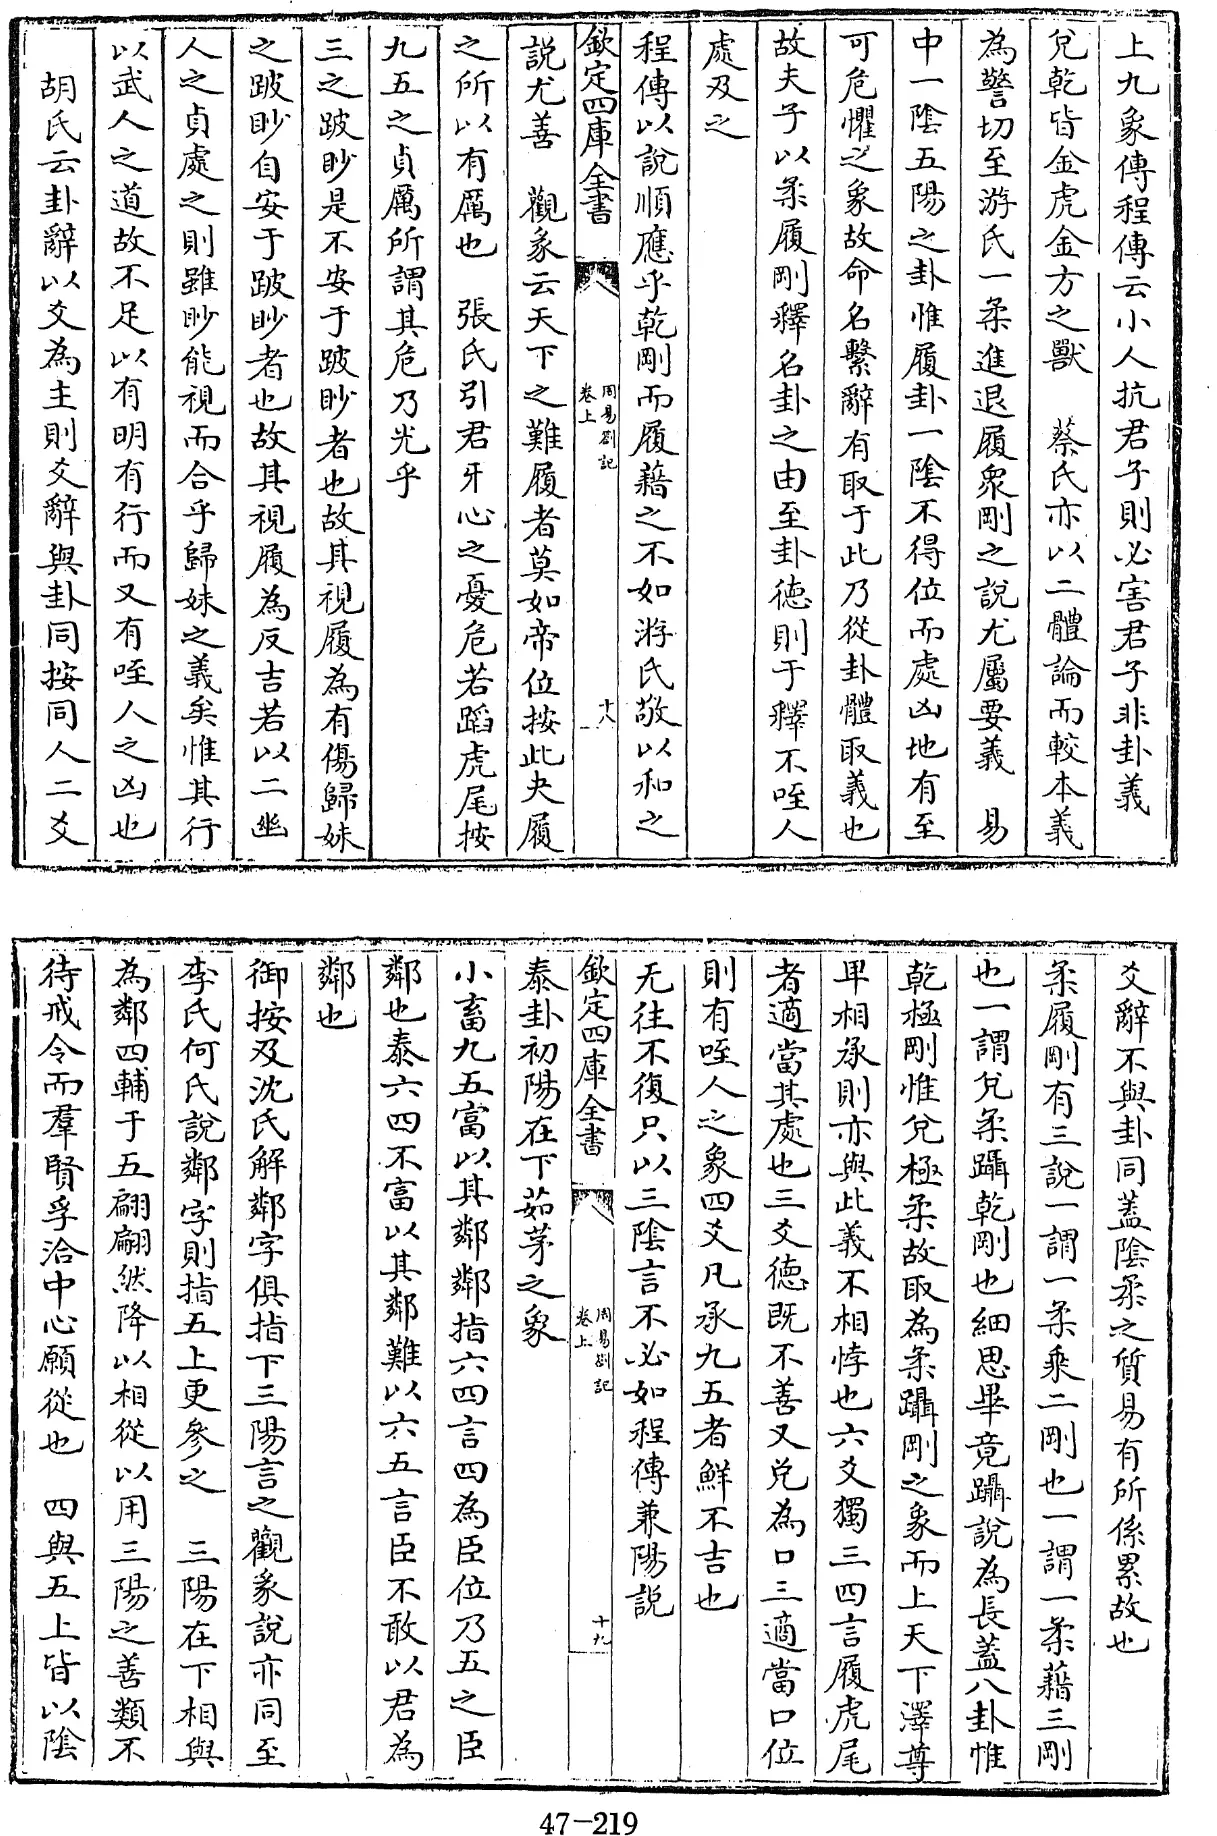 上九象傳程傳云小人抗君子則必害君子非卦義
兌乾皆金虎金方之獸　蔡氏亦以二體論而較本義
為警切至游氏一柔進退履衆剛之說尤屬要義　易
中一陰五陽之卦惟履卦一陰不得位而處凶地有至
可危懼之象故命名繫辭有取于此乃從卦體取義也
故夫子以柔履剛釋名卦之由至卦德則于釋不咥人
處及之
程傳以說順應乎乾剛而履藉之不如游氏敬以和之
欽定四庫全書
周易劄記
卷上
十八
說尤善　觀彖云天下之難履者莫如帝位按此夬履
之所以有厲也　張氏引君牙心之憂危若蹈虎尾按
九五之貞厲所謂其危乃光乎
三之跛眇是不安于跛眇者也故其視履為有傷歸妹
之跛眇自安于跛眇者也故其視履為反吉若以二幽
人之貞處之則雖眇能視而合乎歸妹之義矣惟其行
以武人之道故不足以有明有行而又有咥人之凶也
胡氏云卦辭以爻為主則爻辭與卦同按同人二爻
爻辭不與卦同蓋陰柔之質易有所係累故也
柔履剛有三說一謂一柔乘二剛也一謂一柔藉三剛
也一謂兌柔躡乾剛也細思畢竟躡說為長蓋八卦惟
乾極剛惟兌極柔故取為柔躡剛之象而上天下澤尊
卑相承則亦與此義不相悖也六爻獨三四言履虎尾
者適當其處也三爻德既不善又兌為口三適當口位
則有咥人之象四爻凡承九五者鮮不吉也
无往不復只以三陰言不必如程傳兼陽說
欽定四庫全書
周易劄記
卷上
十九
泰卦初陽在下茹茅之象
小畜九五富以其鄰鄰指六四言四為臣位乃五之臣
鄰也泰六四不富以其鄰難以六五言臣不敢以君為
鄰也
御按及沈氏解鄰字俱指下三陽言之觀彖說亦同至
李氏何氏說鄰字則指五上更參之　三陽在下相與
為鄰四輔于五翩翩然降以相從以用三陽之善類不
待戒令而羣賢孚洽中心願從也　四與五上皆以陰
47-219